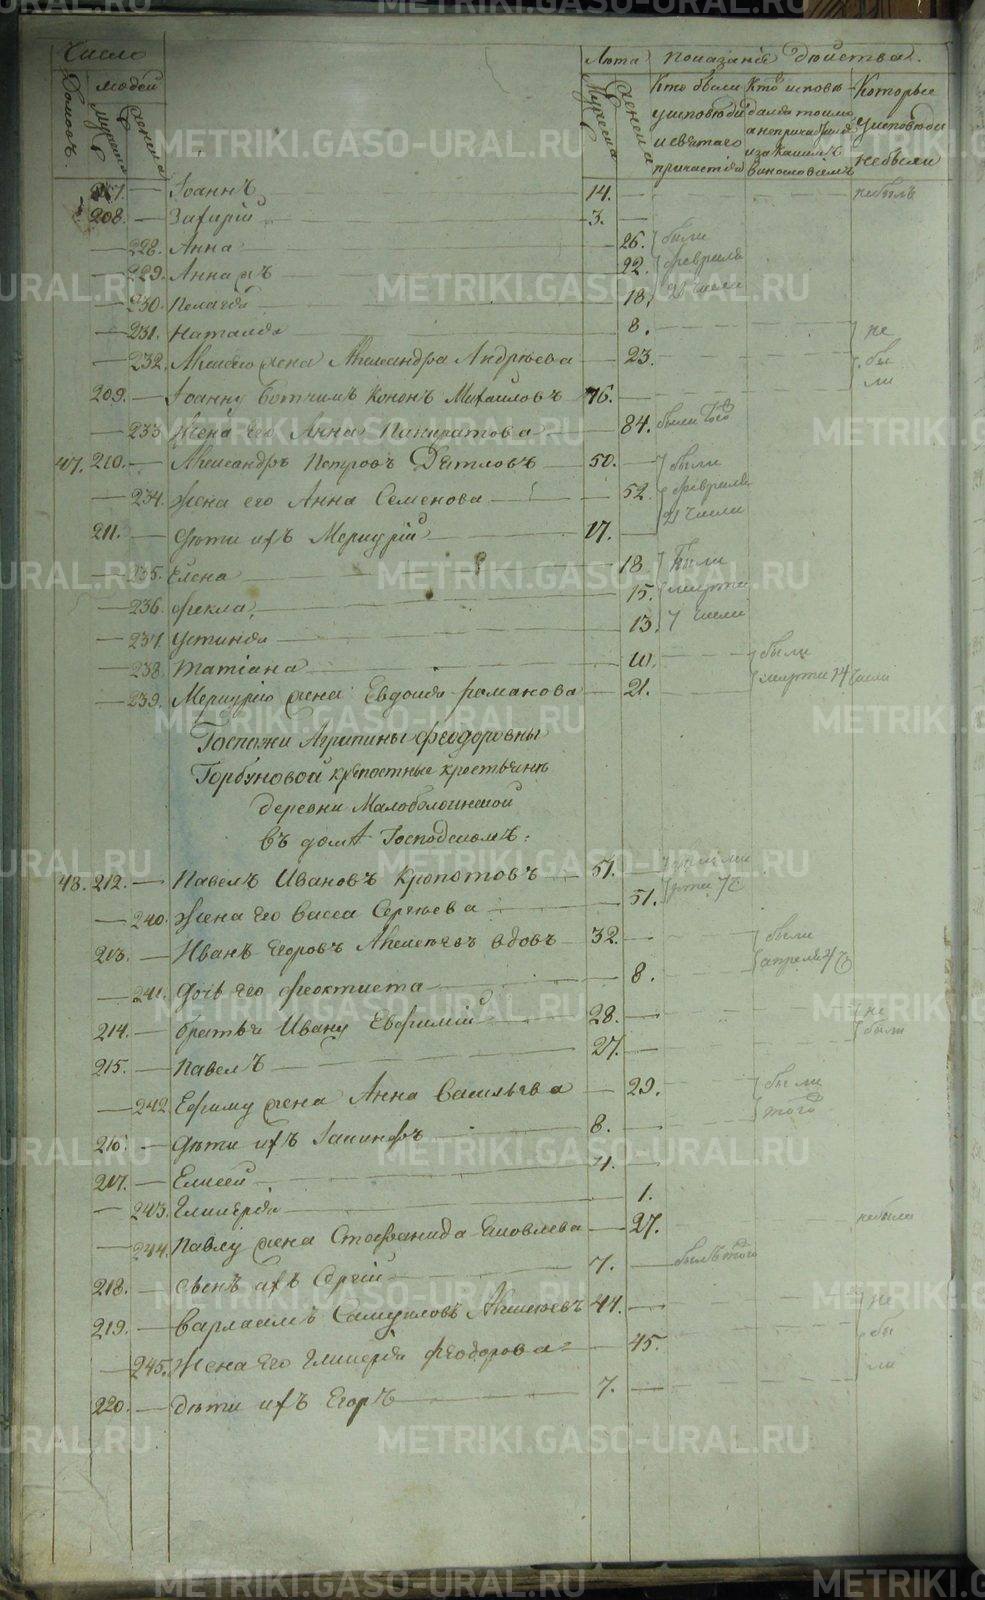 Число
Лѣта
Показаніе дѣйства.
Домовъ.
людей
Мужеска
Женска
Мужеска
Женска
Кто были
у исповѣди
и святаго
причастія
Кто исповѣ-
дался токмо
а не причастил
и за каким
винословіемъ
Которые
у исповѣди
не были
207. Іоаннъ 14. небылъ
208. Захарій 3.
228. Анна 26. были
229. Анна жъ 22. февраля
230. Пелагѣя 18. 21 числа
231. Наталья 8. не
232. Алексѣю жена Александра Андреева 23. бы
ли
209. Іоанну вотчимъ Кононъ Михайловъ 76.
233. Жена его Анна Панкратова 84. были того
47. 210. Александръ Петровъ Дятловъ 50. были
234. Жена его Анна Семенова 52. февраля
21 числа
211. Дѣти ихъ Меркурій 17.
235. Елена 18. были
236. Фекла 15. марта
237. Устинья 13. 7 числа
238. Татіана 10. были
239. Меркурію жена Евдокія Романова 21. марта 14 числа
Госпожи Агрипины Феодоровны
Горбуновой крѣпостные крестьяне
деревни Малоболотинской
въ домѣ Господскомъ:
48. 212. Павелъ Ивановъ Кропотовъ 51.
240. Жена его Васса Сергѣева 51.
213. Иванъ Егоровъ Алексѣевъ вдовъ 32. были
241. Дочь его Феоктиста 8. апреля
214. Братья Ивану Евфимій 28. не
215. Павелъ 27. были
242. Ефиму жена Анна Васильева 29. были
216. Дѣти ихъ Іакинфъ 8. того
217. Елисей 4.
243. Гликерія 1.
244. Павлу жена Стефанида Яковлева 27. небыла
218. Сынъ ихъ Сергій 7. былъ того
219. Варлаамъ Самуиловъ Алексѣевъ 41. не
245. Жена его Гликерія Феодорова 45. бы
ли
220. Дѣти ихъ Егоръ 7.
METRIKI.GASO-URAL.RU